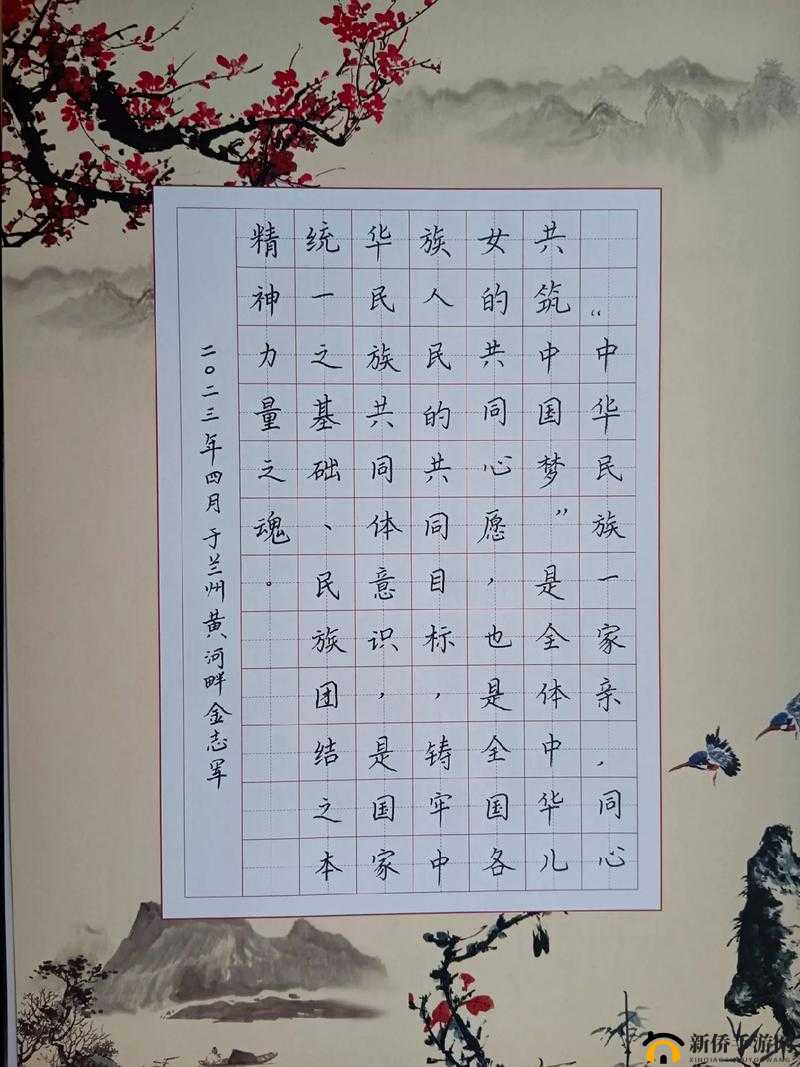 “中华民族一家亲，同心
共筑中国梦”是全体中华儿
女的共同心愿，也是全国各
族人民的共同目标，铸牢中
华民族共同体意识，是国家
统一之基础、民族团结之本
精神力量之魂。
二〇二三年四月于兰州黄河畔金志军
新侨手游网
XINQIAOSHOUYOUWANG